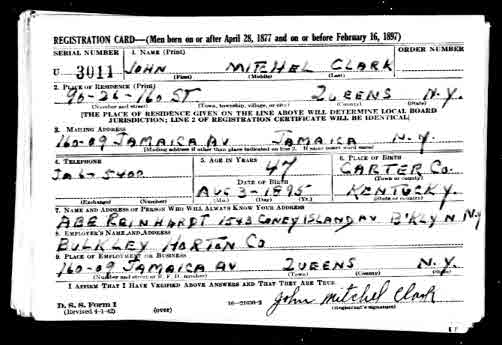 REGISTRATION CARD—(Men born on or after April 28, 1877 and on or before February 16, 1897)
SERIAL NUMBER 1. NAME (Print) ORDER NUMBER
U 3011 JOHN MITCHEL CLARK
(First) (Middle) (Last)
2. PLACE OF RESIDENCE (Print)
90-26-160 ST QUEENS N.Y.
(Number and street) (Town, township, village, or city) (County) (State)
[THE PLACE OF RESIDENCE GIVEN ON THE LINE ABOVE WILL DETERMINE LOCAL BOARD
JURISDICTION; LINE 2 OF REGISTRATION CERTIFICATE WILL BE IDENTICAL]
3. MAILING ADDRESS
160-09 JAMAICA AV JAMAICA N.Y.
[Mailing address if other than place indicated on line 2. If same insert word same]
4. TELEPHONE 5. AGE IN YEARS 6. PLACE OF BIRTH
JA6-5400 47 CARTER CO.
DATE OF BIRTH (Town or county)
AUG 3-1895 KENTUCKY.
(Exchange) (Number) (Mo.) (Day) (Yr.) (State or country)
7. NAME AND ADDRESS OF PERSON WHO WILL ALWAYS KNOW YOUR ADDRESS
ABE REINHARDT 1543 CONEY ISLAND AV B'KLYN NY
8. EMPLOYER'S NAME AND ADDRESS
BULKLEY HORTON CO
9. PLACE OF EMPLOYMENT OR BUSINESS
160-09 JAMAICA AV QUEENS N.Y.
(Number and street or R. F. D. number) (Town) (County) (State)
I AFFIRM THAT I HAVE VERIFIED ABOVE ANSWERS AND THAT THEY ARE TRUE.
D. S. S. Form 1 John Mitchel Clark
(Revised 4-1-42) (over) (Registrant's signature)